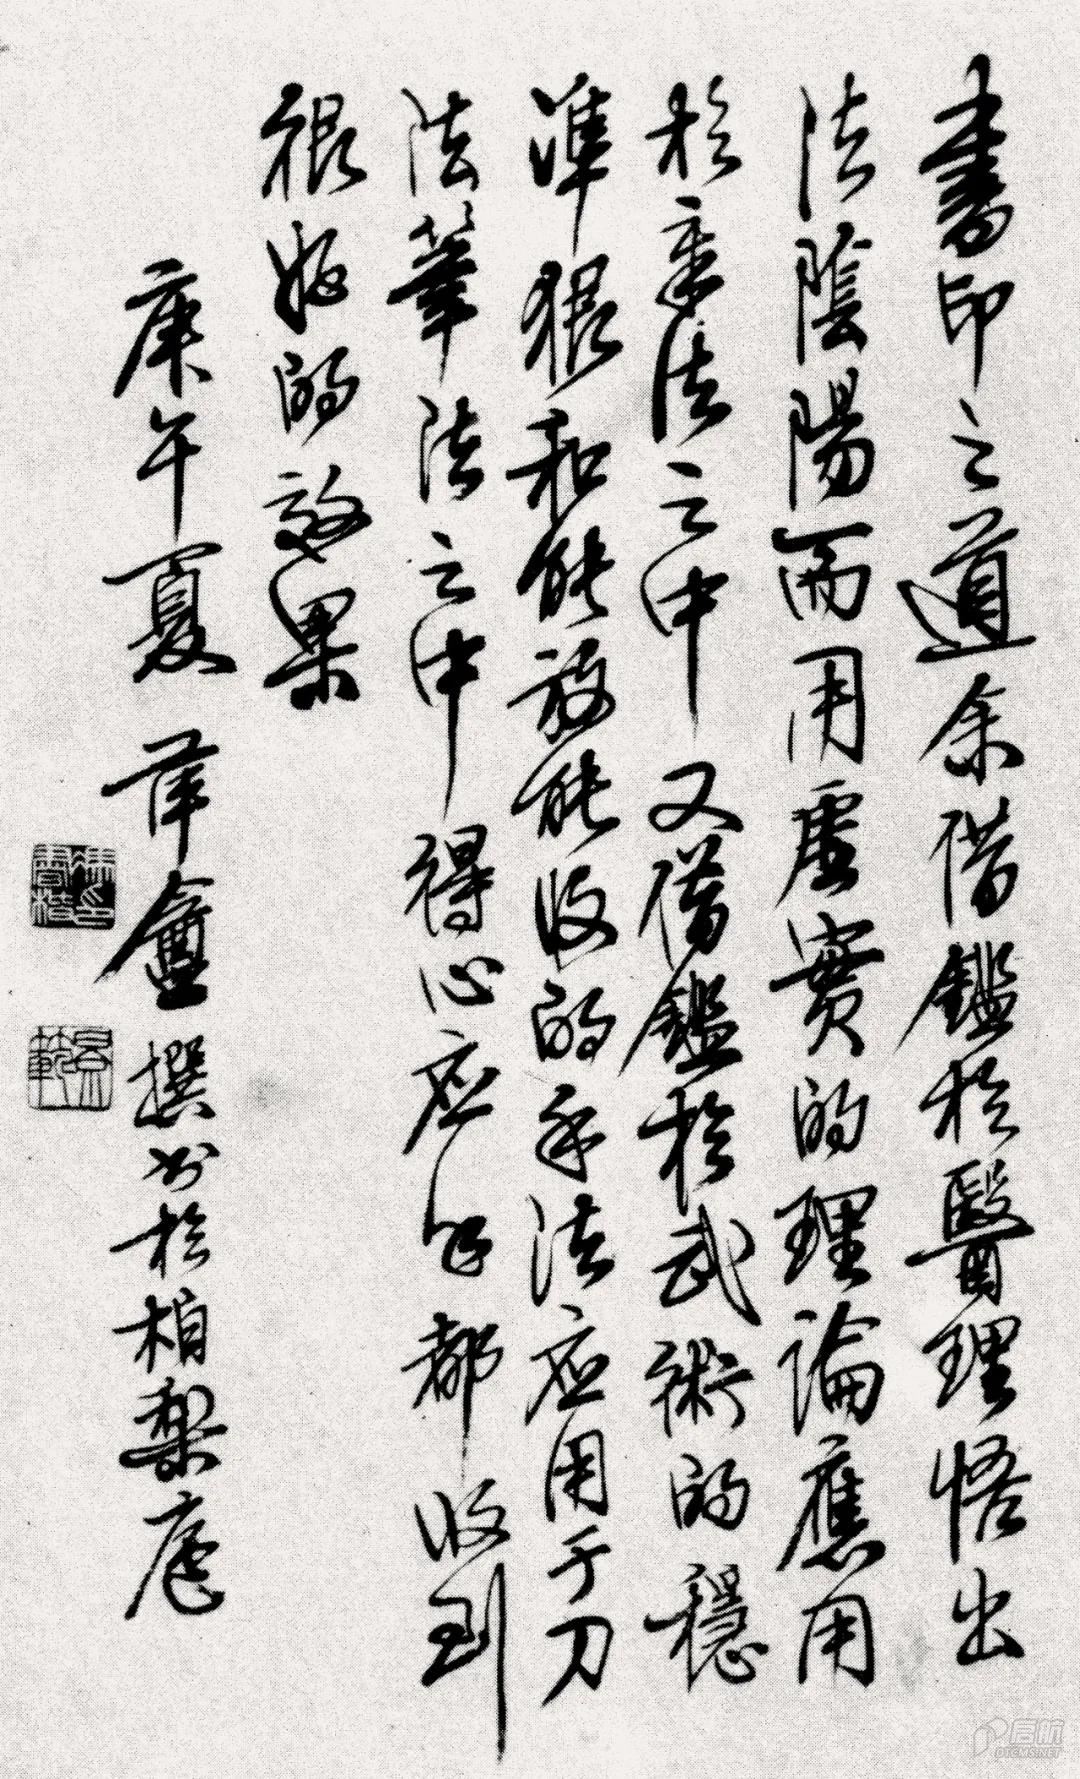 書印之道余借鑑於醫理悟出
法陰陽両用虛實的理論應用
於章法之中又借鑑於武術的穩
準狠和能放能收的手法应用于刀
法筆法之中得心应手都收到
很好的效果
庚午夏 萍盦撰书於柏梨庵
启航
DTCMS.NET